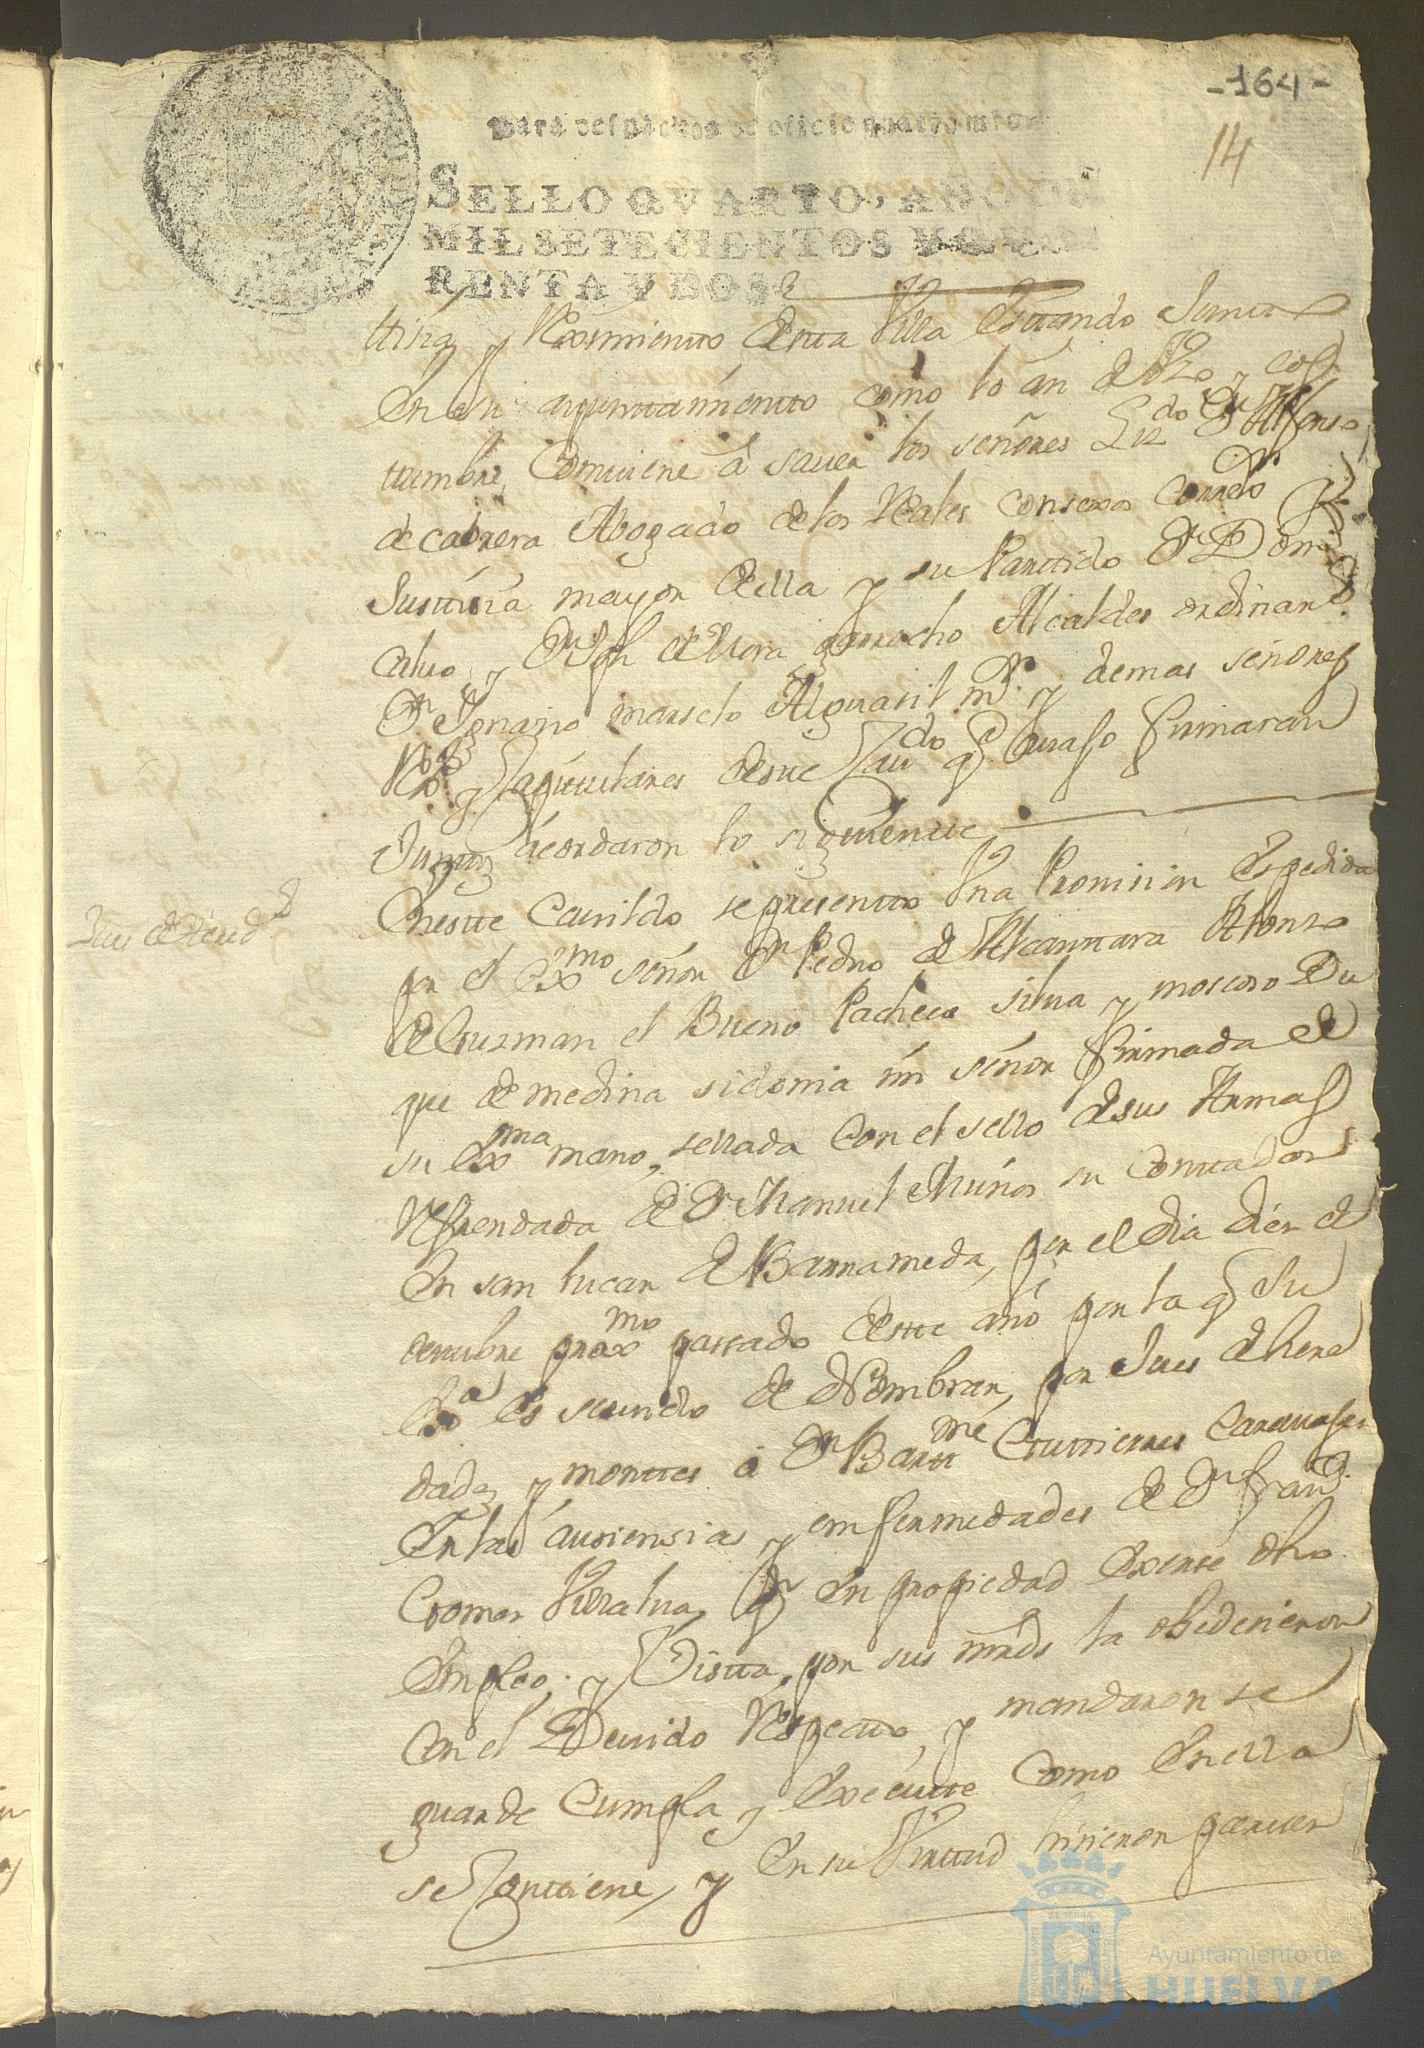 -164-
14
Para despachos de oficio quatro mrs
SELLO QVARTO, AÑO DE
MIL SETECIENTOS Y QUA
RENTA Y DOS
ttiza y Reximiento desta Villa estando Juntos
en su ayuntamiento como lo an de Vzo y cos
tumbre, Comviene â sauer los señores Lizdo Dn Alfonso
de cabrera Abogado de los Reales consexos Correxor
Justisia mayor della y su Parttido Dn Domgo
calvo, y Dn Jph de Mora garrocho Alcaldes ordinarios
Dn Ignazio marselo Alguasil mor y demas señores
Rexs y Capitulares deste Caudo q avajo firmaran
Juntos acordaron lo siguiente
Jues de hered
Eneste Cavildo se presento Vna Provision Espedida
por el Exmo señor Dn Pedro de Alcantara Alonso
de Guzman el Bueno Pacheco silva y moscoso Du
que de medina sidonia mi señor firmada de
su Exma mano, sellada Con el sello de sus Armas
Refrendada de Dn Manuel Muños su Contador
En san lucar de Barrameda, por el dia dies de
octubre proxmo passado deste año por la q Su
Exa es servido de Nombrar, por Jues de here
dades y montes â Dn Bartme Gutierres Caravajal
En las ausensias y enfermedades de Dn Franco
Gomes Villalva, qn en propiedad Exerse dho
Empleo, y Vista, por sus mrds la obedecieron
Con el Devido Respecto, y mandaron se
guarde Cumpla y Execute Como En ella
se Contiene, y En su Virttud hisieron pareser
Ayuntamiento de
HUELVA